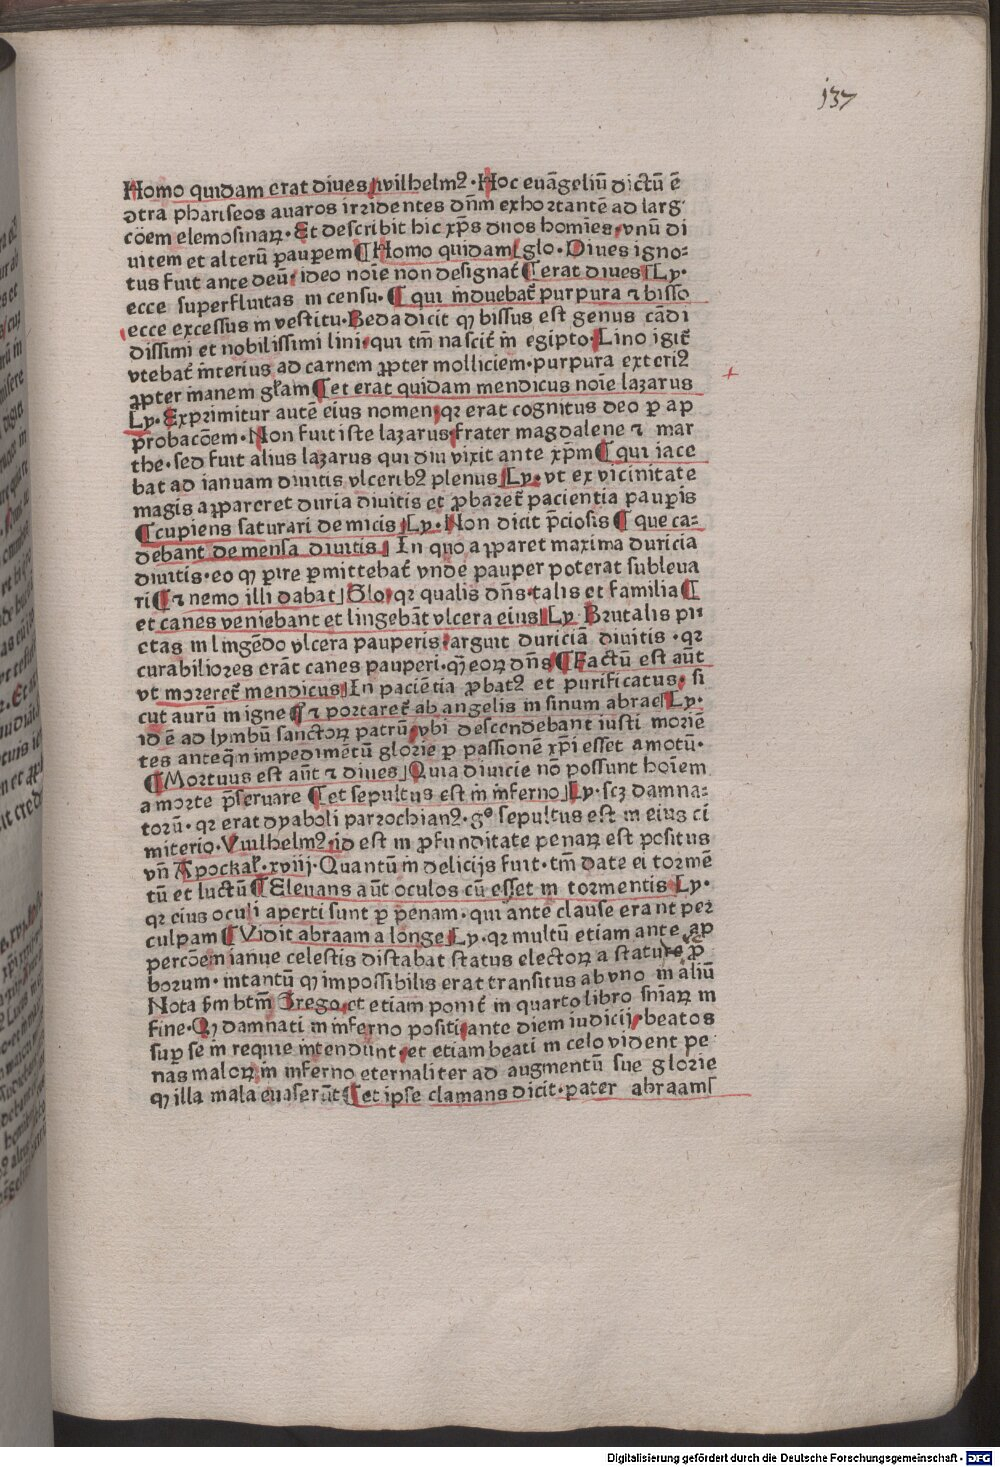 137
Homo quidam erat diues wilhelmꝰ · Hoc euāgeliū dictū ē
ꝯtra phariseos auaros irridentes dn̄m exhortantē ad larg
cōem elemosinaꝝ · Et describit hic xp̄s duos homīes · vnū di
uitem et alterū pauꝑem ¶ Homo quidam glo · Diues igno-
tus fuit ante deū · ideo noīe non designat̄ ¶ erat diues Ly ·
ecce superfluitas in censu · ¶ qui īduebat̄ purpura ⁊ bisso
ecce excessus in vestitu · Beda dicit ꝙ bissus est genus cādi
dissimi et nobilissimi lini · qui tm̄ nascit̄ in egipto · Lino igit̄
vtebat̄ īterius ad carnem ꝓpter molliciem · purpura exteriꝰ
ꝓpter inanem gl̄am ¶ et erat quidam mendicus noīe lazarus
Ly · Exprimitur autē eius nomen · qꝛ erat cognitus deo ꝑ ap
probacōem · Non fuit iste lazarus frater magdalene ⁊ mar
the · sed fuit alius lazarus qui diu vixit ante xp̄m ¶ qui iace
bat ad ianuam diuitis vlceribꝰ plenus Ly · vt ex vicinitate
magis apꝑareret duria diuitis et ꝓbaret̄ paciencia pauꝑis
¶ cupiens saturari de micis Ly · Non dicit p̄ciosis ¶ que ca-
debant de mensa diuitis In quo apꝑaret maxima duricia
diuitis · eo ꝙ ꝑire ꝑmittebat̄ vnde pauper poterat subleua
ri ¶ ⁊ nemo illi dabat Glo · qꝛ qualis dn̄s · talis et familia ¶
et canes veniebant et lingebāt vlcera eius Ly Brutalis pi
etas in lingēdo vlcera pauperis · arguit duriciā diuitis · qꝛ
curabiliores erāt canes pauperi · qͣ eoꝝ dn̄s ¶ Factū est aūt
vt moreret̄ mendicus In paciētia ꝓbatꝰ et purificatus · si
cut aurū in igne ¶ ⁊ portaret̄ ab angelis in sinum abrae Ly ·
id ē ad lymbū sanctoꝝ patrū · vbi descendebant iusti morie
tes anteq̄ impedimētū glorie ꝑ passionē xp̄i esset amotū ·
¶ Mortuus est aūt ⁊ diues Quia diuicie nō possunt hoīem
a morte p̄seruare ¶ et sepultus est in īferno Ly · scꝫ damna-
torū · qꝛ erat dyaboli parrochianꝰ · gͦ sepultus est in eius ci
miterio · Vuilhelmꝰ · id est in ꝓfunditate penaꝝ est positus
vn̄ Apockal̄ · xviij · Quantū in delicijs fuit · tm̄ date ei tormē
tū et luctū ¶ Eleuans aūt oculos cū esset in tormentis Ly ·
qꝛ eius oculi aperti sunt ꝑ penam · qui ante clause erant per
culpam ¶ Vidit abraam a longe Ly · qꝛ multū etiam ante ap
percōem ianue celestis distabat status electoꝝ a statu re ꝓ
borum · intantū ꝙ impossibilis erat transitus ab vno in aliū
Nota s̄m btm̄ Grego · et etiam ponit̄ in quarto libro sn̄iaꝝ in
fine · Qꝙ damnati in inferno positi · ante diem iudicij · beatos
suꝑ se in requie intendunt · et etiam beati in celo vident pe
nas maloꝝ in inferno eternaliter ad augmentū sue glorie
ꝙ illa mala euaserūt ¶ et ipse clamans dicit · pater abraam
Digitalisierung gefördert durch die Deutsche Forschungsgemeinschaft - DFG